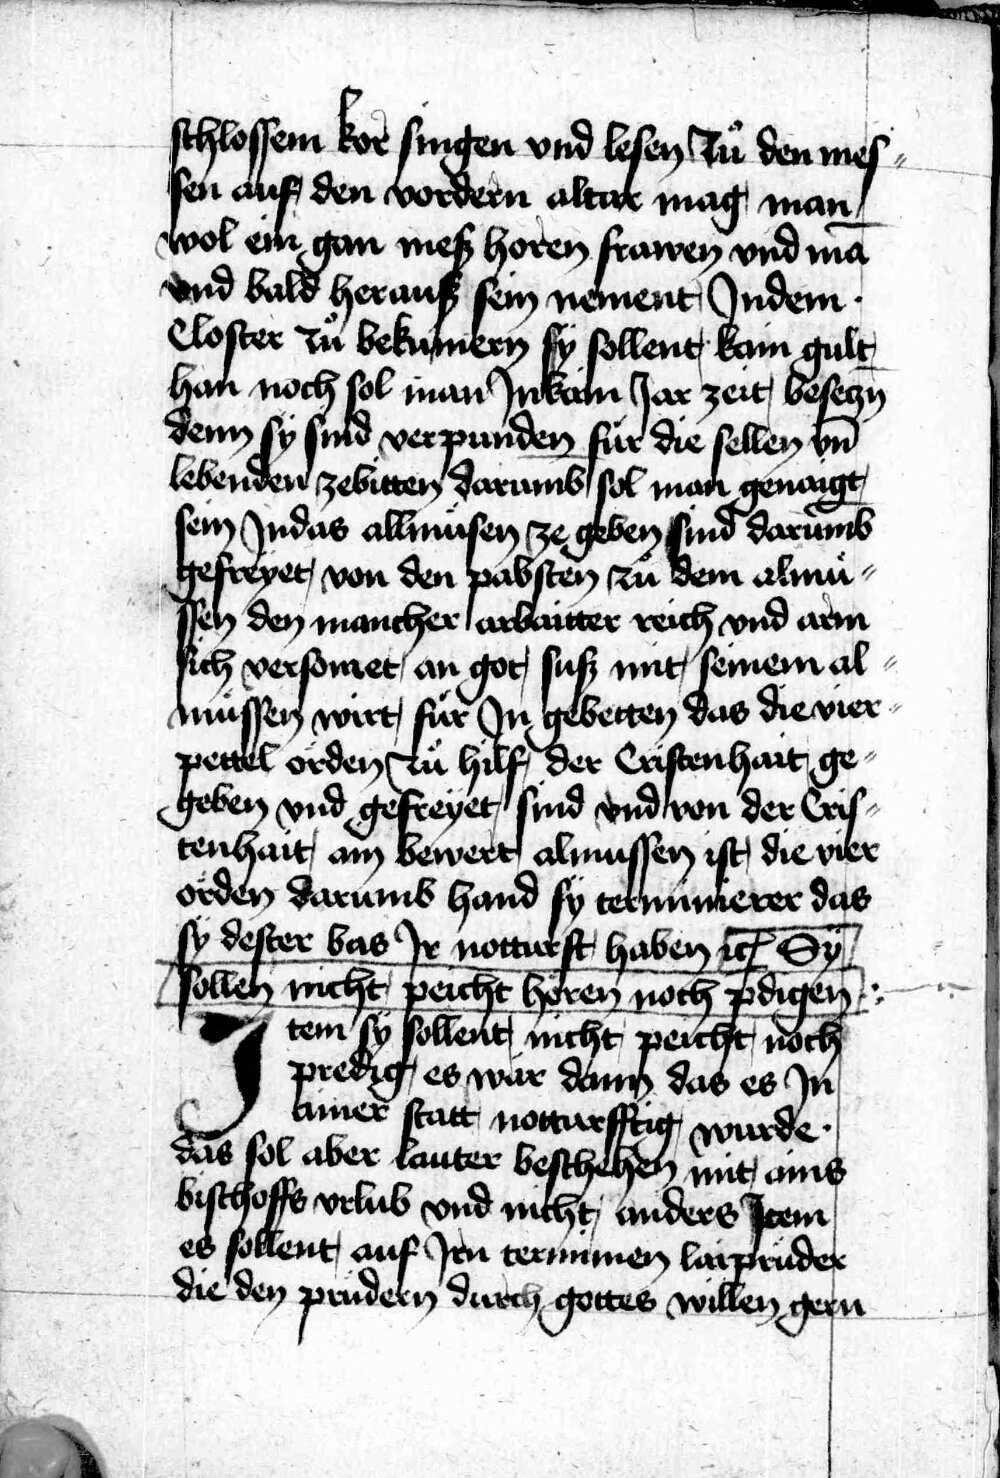 schlossem kor singen vnd lesen Zů den mes=
sen auf den vordern altar mag man
wol ein gan meß horen frawen vnd mā
vnd bald herauß sein nement Indem
Closter Zů bekumern sy sollent kain gult
han noch sol man Inkain Jar zeit besetzn
denn sy sind verpunden für die sellen vn̄
lebenden zebitten darumb sol man genaigt
sein Indas allmüsen ze geben sind darumb
gefreyet von den pabsten zů dem almü=
ssen den mancher arbaitter reich vnd arm
sich versomet an got suß mit seinem al=
müssen wirt für In gebetten das die vier=
pettel örden Zů hilf der Cristenhait ge=
geben vnd gefreyet sind vnd von der Cris=
tenhait am bewert almussen ist die vier
örden darumb hand sy terminierer das
sy dester bas Ir notturft haben Sy
sollen nicht peicht hören noch pdigen
Item sy sollent nicht peicht noch
predig es wär dann das es In
ainer statt notturfftig wurde
das sol aber lauter beschehen mit ains
bischoffs vrlub vnd nicht anders Item
es sollent auf Irn terminen lärprüder
die den prüdern durch gottes willen gern